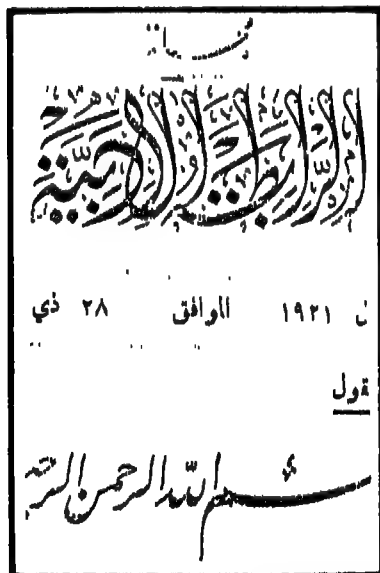 الرابطة الأدبية
ن ١٩٢١ الموافق ٢٨ ذي
قول
بسم الله الرحمن الرحـ